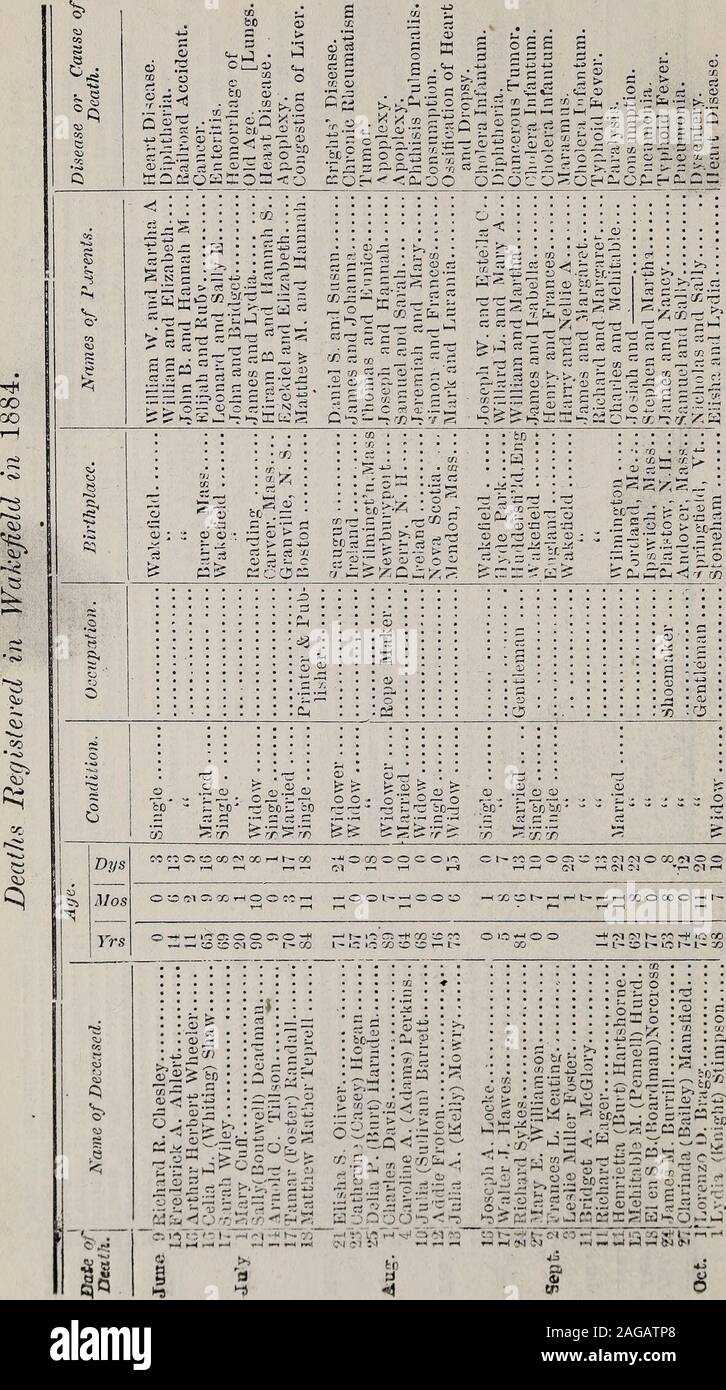 Deaths Registered in Wakefield in 1884.
Date of Death. Name of Deceased. Age. Yrs Mos Dys Condition. Occupation. Birthplace. Names of Parents. Disease or Cause of Death.
June 9 Richard R. Chesley 0 0 3 Single Wakefield William W. and Martha A Heart Disease.
15 Frederick A. Ahlert 14 6 13 “ “ William and Elizabeth Diphtheria.
16 Arthur Herbert Wheeler 11 2 9 “ “ John B. and Hannah M Railroad Accident.
16 Celia L. (Whiting) Shaw 65 9 16 Married Barre Mass Elijah and Ruby Cancer.
17 Sarah Wiley 69 8 8 Single Wakefield Leonard and Sally E Enteritis.
July 1 Mary Cuff 20 1 12 “ “ John and Bridget Hemorrhage of [Lungs.
12 Sally (Boutwell) Deadman 90 10 8 Widow Reading James and Lydia Old Age.
14 Arnold C. Tillson 9 0 1 Single Carver, Mass Hiram B and Hannah S Heart Disease.
17 Tamar (Foster) Randall 70 3 17 Married Granville, N. S. Ezekiel and Elizabeth Apoplexy.
18 Matthew Mather Teprell 84 11 18 Single Printer & Publisher Boston Matthew M. and Hannah. Congestion of Liver.
21 Elisha S. Oliver 71 11 24 Widower Saugus Daniel S. and Susan Brights' Disease.
23 Catherine (Casey) Hogan 57 0 0 Widow Ireland James and Johanna Chronic Rheumatism
25 Delia P. (Burt) Harnden 55 0 18 “ Wilmingt'n, Mass Thomas and Eunice Tumor.
Aug. 1 Charles Davis 89 7 0 Widower Rope Maker. Newburyport Joseph and Hannah Apoplexy.
4 Caroline A. (Adams) Perkins 64 11 10 Married Derry, N. H Samuel and Sarah Apoplexy.
10 Julia (Sullivan) Barrett 68 0 0 Widow Ireland Jeremiah and Mary Phthisis Pulmonalis.
12 Addie Froton 16 0 0 Single Nova Scotia Simon and Frances Consumption.
13 Julia A. (Kelly) Mowry 73 6 15 Widow Mendon, Mass Mark and Lurania Ossification of Heart and Dropsy.
16 Joseph A. Locke 0 1 0 Single Wakefield Joseph W. and Estella C Cholera Infantum.
17 Walter J. Hawes 5 8 7 “ Hyde Park Willard L. and Mary A Diphtheria.
24 Richard Sykes 84 6 13 Married Gentleman Huddersfi'ld, Eng William and Martha Cancerous Tumor.
27 Mary E. Williamson 0 7 10 Single Wakefield James and Isabella Cholera Infantum.
Sept. 2 Frances L. Keating 0 11 0 Single England Henry and Frances Cholera Infantum.
3 Leslie Miller Foster 1 29 “ Wakefield Harry and Nellie A Marasmus.
11 Bridget A. McGlory 7 6 “ “ James and Margaret Cholera Infantum.
11 Richard Eager 14 11 13 “ “ Richard and Margaret Typhoid Fever.
14 Henrietta (Burt) Hartshorne 72 11 22 Married Wilmington Charles and Mehitable Paralysis.
15 Mehitable M. (Pennell) Hurd 62 8 22 “ Portland, Me. Josiah and —— Consumption.
18 Ellen S B. (Boardman) Norcross 77 0 0 “ Ipswich, Mass Stephen and Martha Pneumonia.
24 James M. Burrill 53 8 8 “ Shoemaker Plaistow, N. H. James and Nancy Typhoid Fever.
27 Clarinda (Bailey) Mansfield 74 0 12 “ Andover, Mass Samuel and Sally Pneumonia.
Oct. 1 Lorenzo D. Bragg 75 11 20 “ Gentleman Springfield, Vt. Nicholas and Sally Dysentery.
1 Lydia (Knight) Stimpson 88 7 10 Widow Stoneham Elisha and Lydia Heart Disease.
alamy
Image ID: 2AGATP8
www.alamy.com